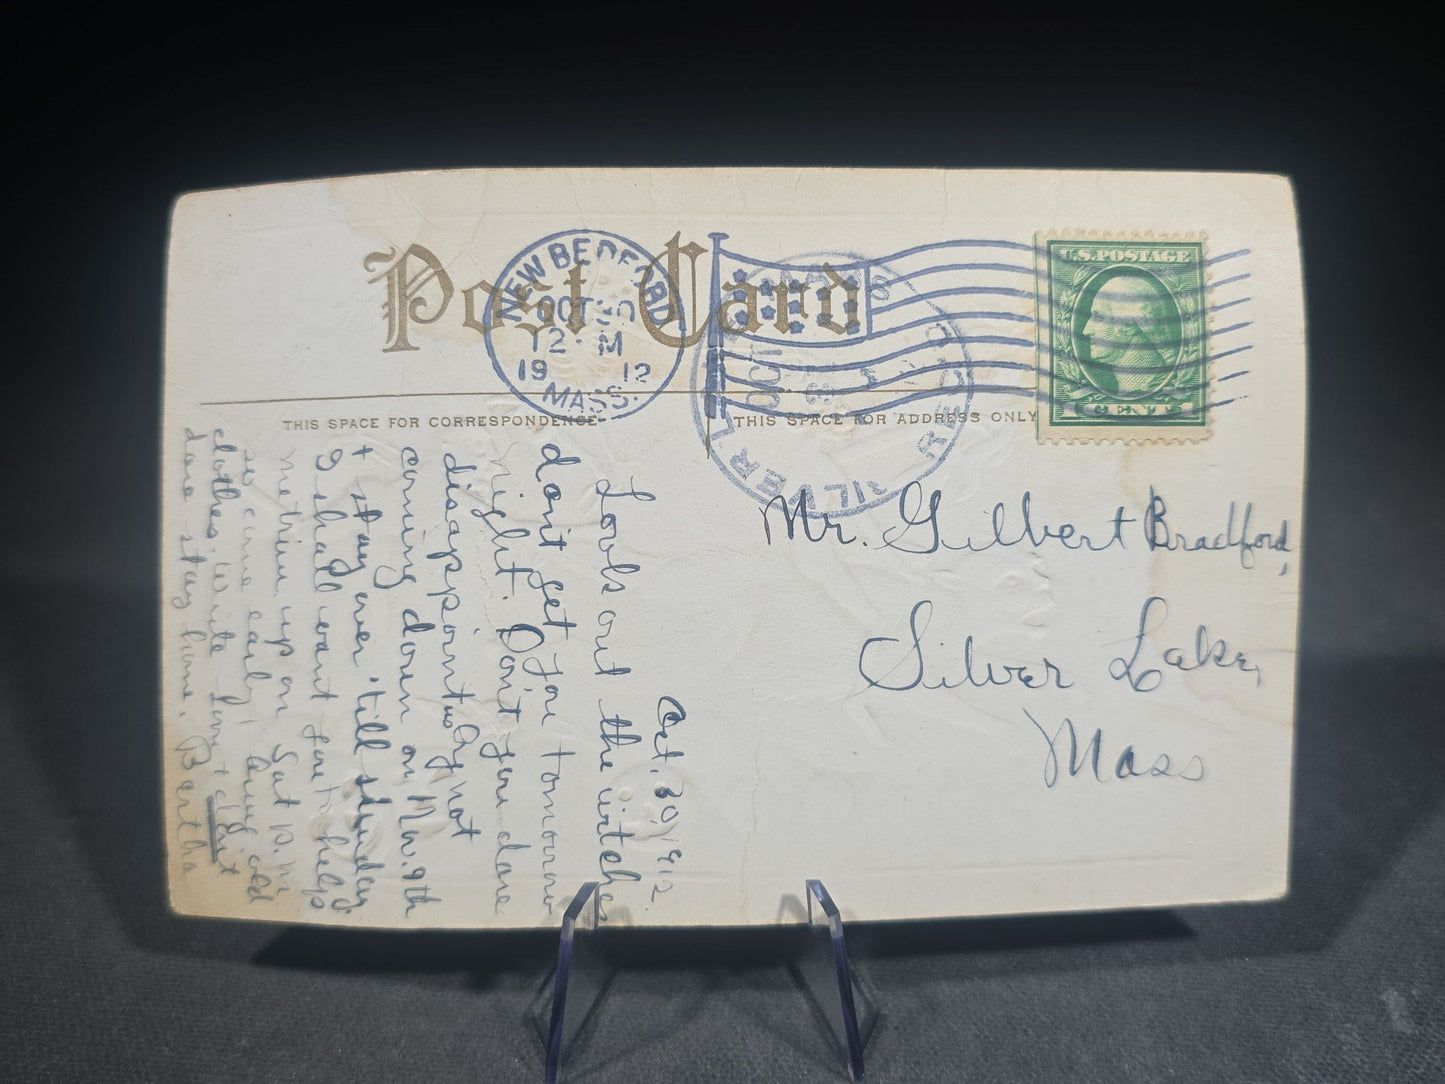 Post Card
NEW BEDFORD
OCT 30
12 M
1912
MASS.
U.S. POSTAGE
CENT
THIS SPACE FOR CORRESPONDENCE
THIS SPACE FOR ADDRESS ONLY
SILVER
REC'D
OCT
Mr. Gilbert Bradford,
Silver Lake,
Mass
Oct. 30, 1912.
Look out the witches
don't get you tomorrow
night. Don't you dare
disappoint by not
coming down on Nov. 9th
+ stay over 'till Sunday.
I shall want you to help
me trim up on Sat. P.M.
so come early,
clothes. Write first +
dare stay home. Bertha